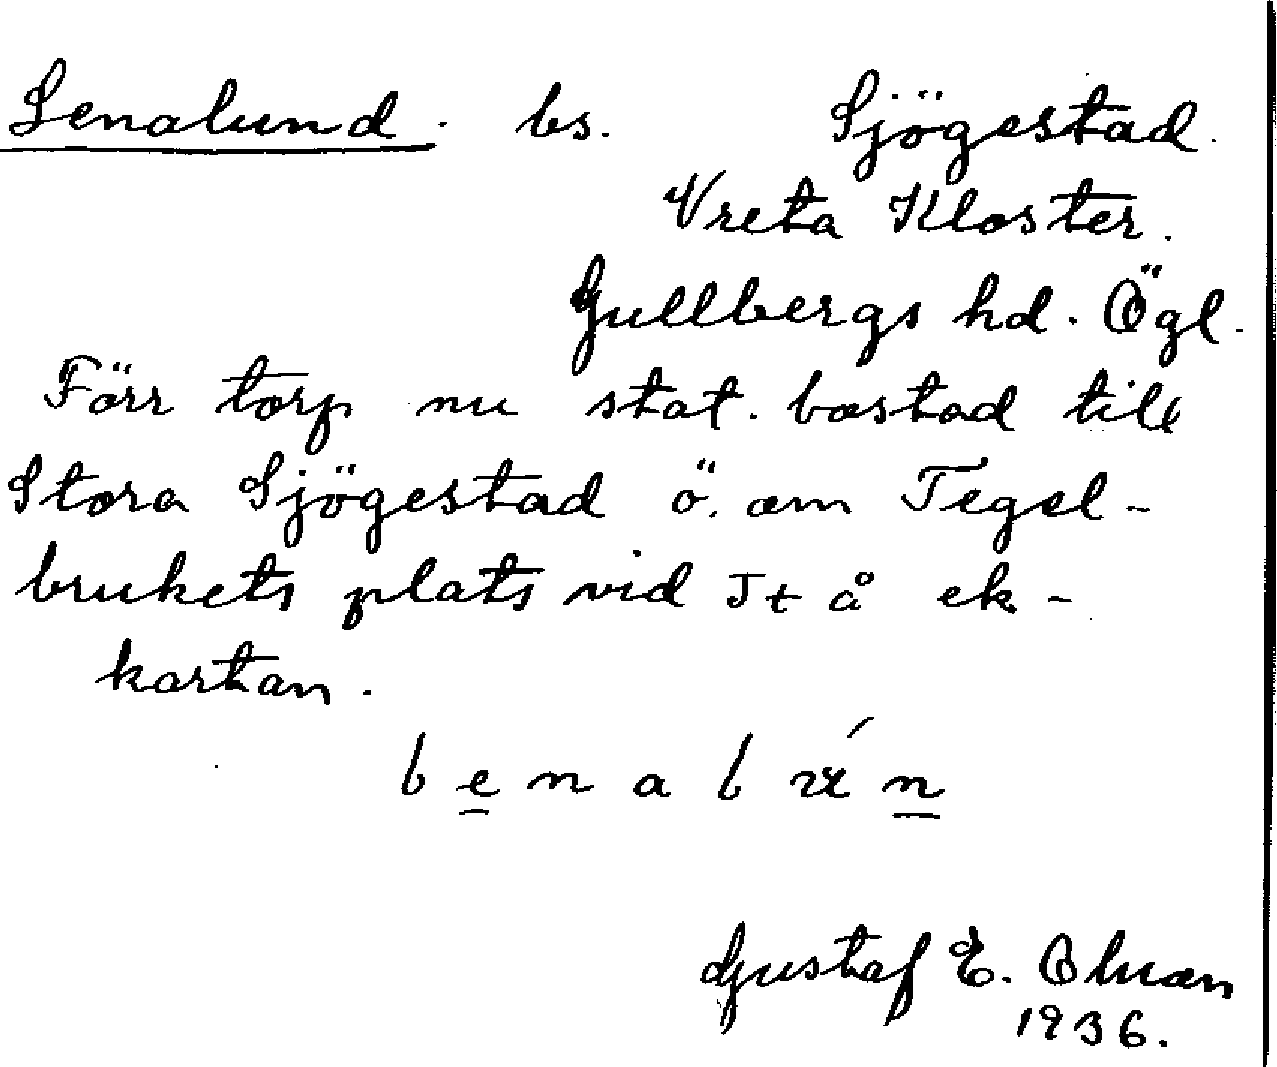 Lenalund. bs. Sjögestad.
Vreta Kloster.
Gullbergs hd. Ögl.
Förr torp nu stat. bostad till
Stora Sjögestad ö. om Tegel-
brukets plats vid St å ek-
kartan.
Gustaf E.
1936.